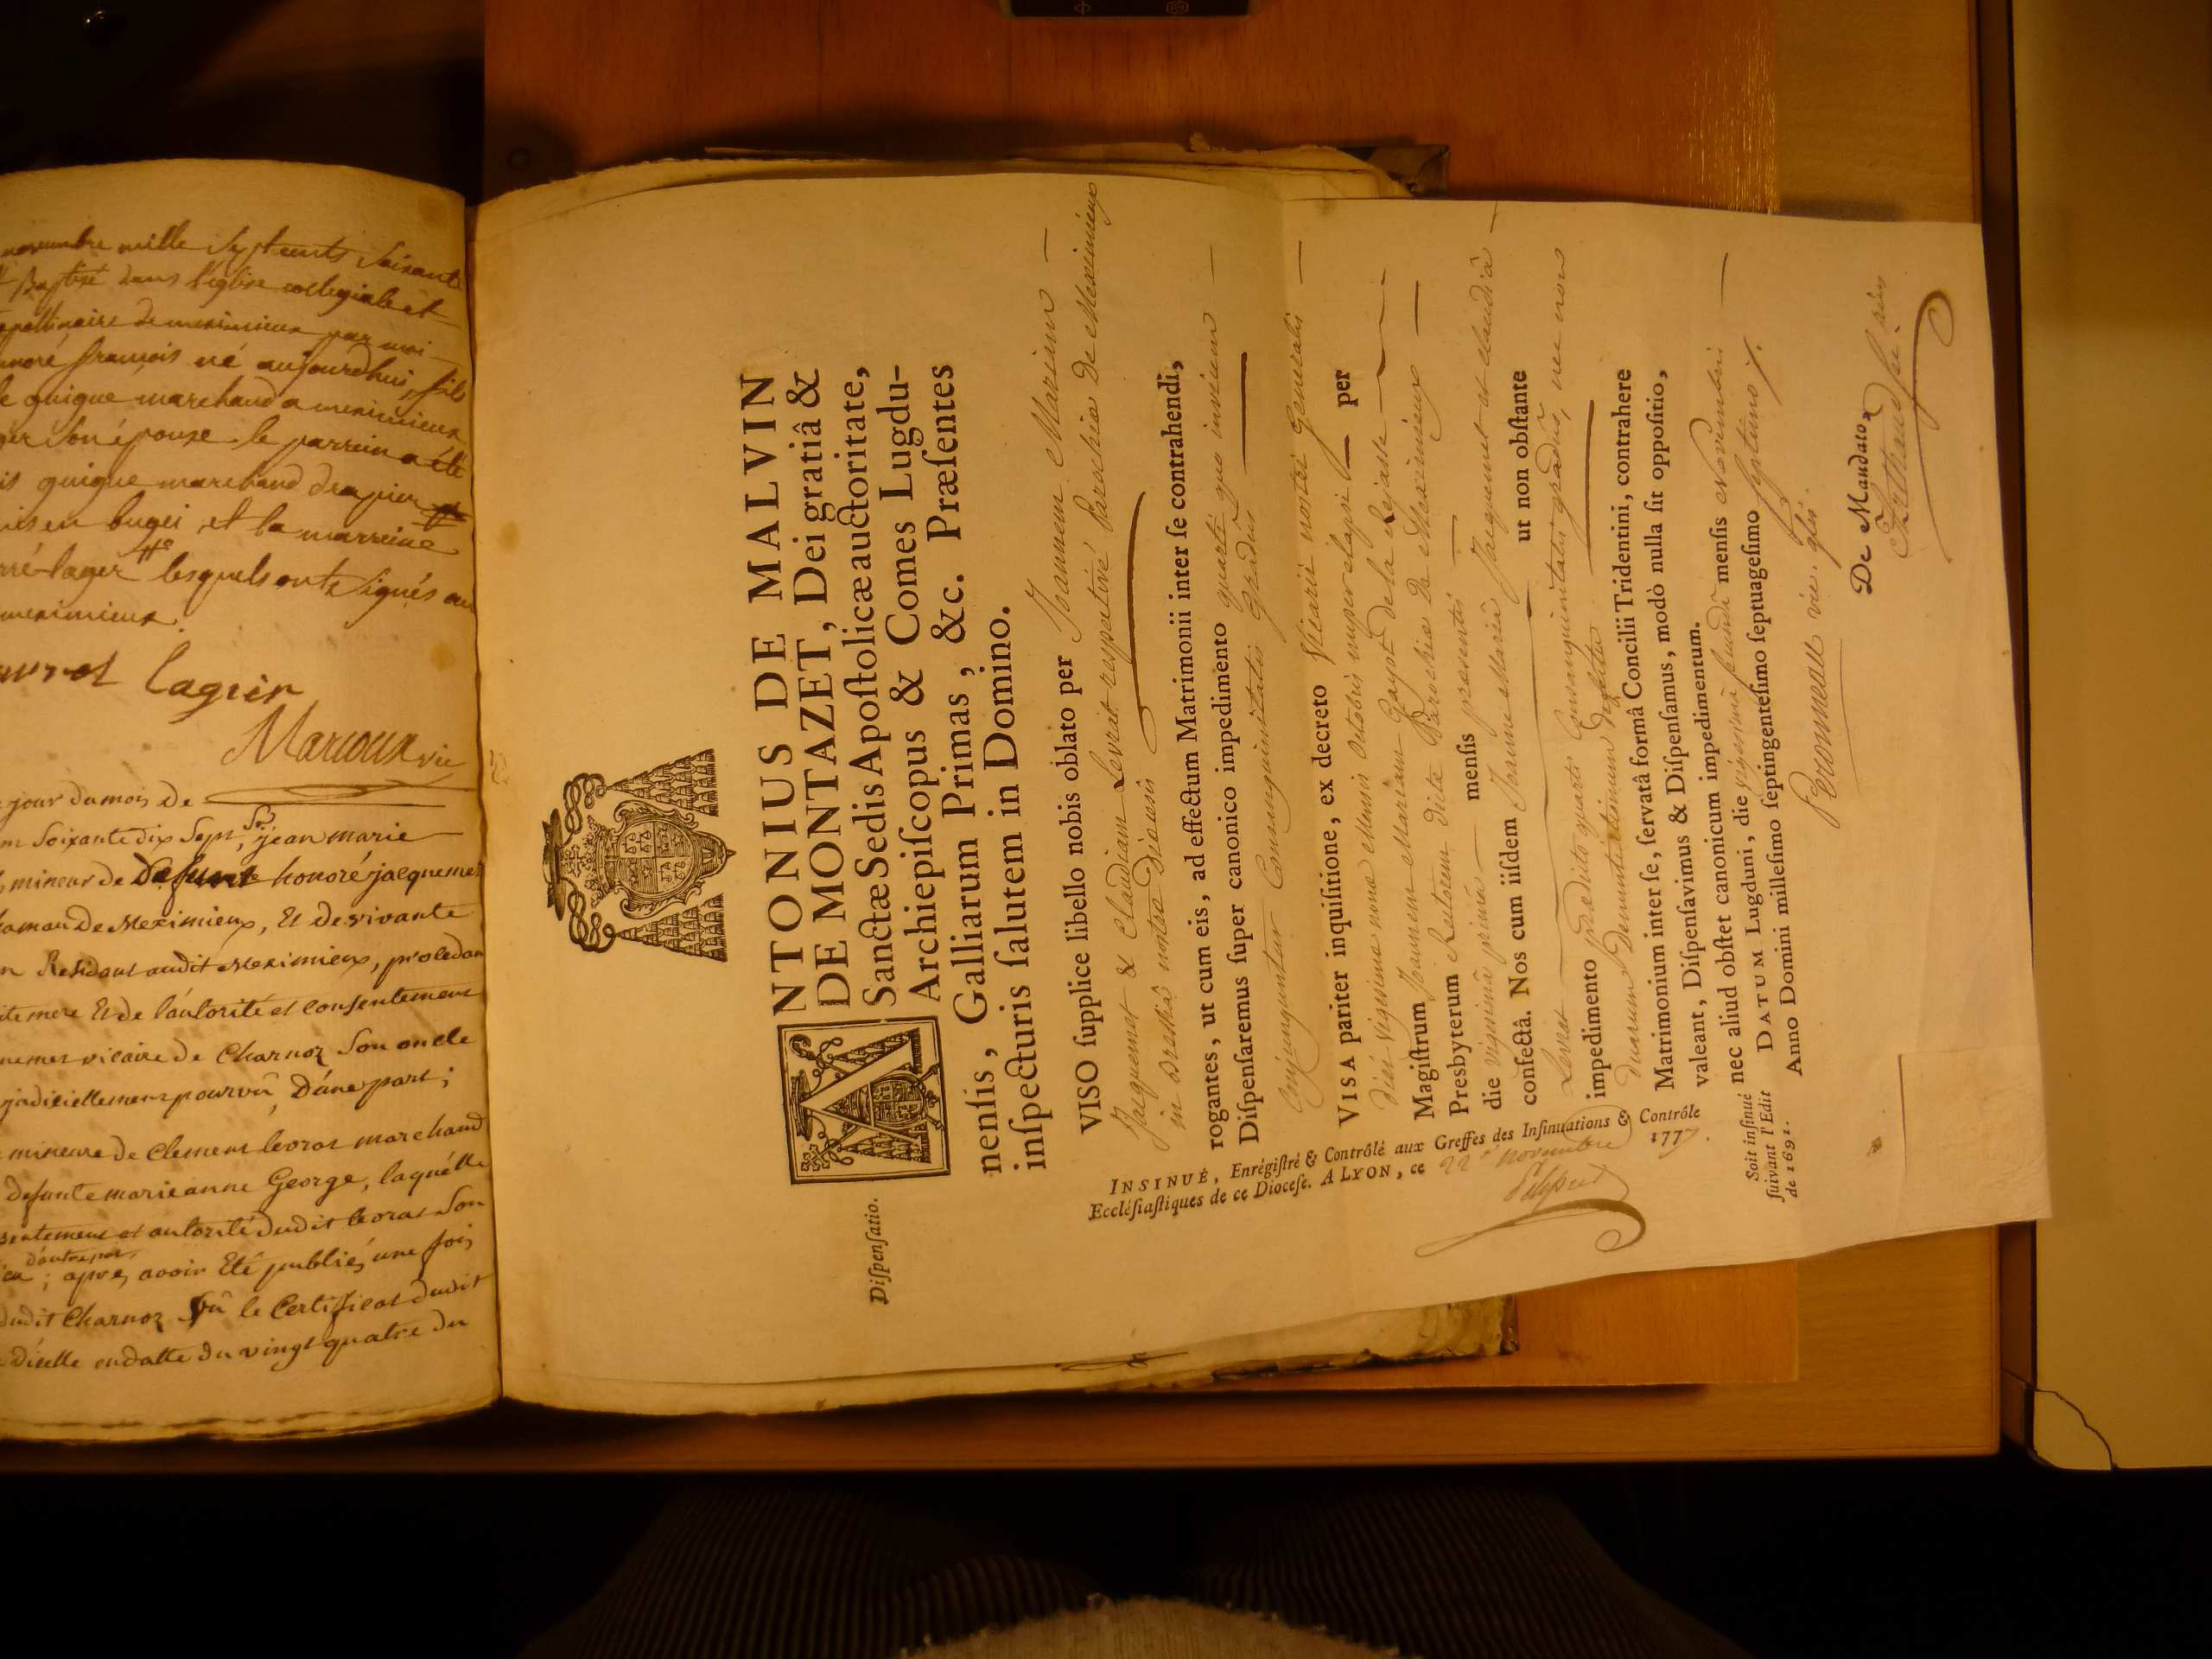 novembre mille Sept cents Soixante
Baptisé dans l'eglise collegiale et
apollinaire de meximieux par moi
honoré françois né aujourdhui, fils
guigue marchand a meximieux
son épouse. le parrein a été
guigue marchand drapier
en bugei, et la marreine
lager lesquels ont signés au
meximieux.
lagier
Marcoux vic
jour du mois de
Soixante dix Sept, Sr. jean marie
mineur de Defunt honoré jacquemet
De Meximieux, Et de vivante
Residant audit Meximieux, procedant
mere Et de l'autorité et consentement
vicaire de Charnoz Son oncle
judiciellement pourvu, D'une part;
mineure de Clement levrat marchand
defunte marie anne George, laquelle
consentement et autorité dudit levrat Son
d'autre part
; après avoir Eté publiés une fois
dudit Charnoz Vû le Certificat dudit
en datte du vingt quatre du
Dispensatio.
ANTONIUS DE MALVIN
DE MONTAZET, Dei gratiâ &
Sanctæ Sedis Apostolicæ auctoritate,
Archiepiscopus & Comes Lugdu-
nensis, Galliarum Primas, &c. Præsentes
inspecturis salutem in Domino.
VISO supplice libello nobis oblato per Joannem Mariam
Jacquemet & Claudiam Levrat respective Parochiæ De Meximieux
in Bressia nostræ Diœcesis
rogantes, ut cum eis, ad effectum Matrimonii inter se contrahendi,
Dispensaremus super canonico impedimento quarti quo invicem
Conjunguntur Consanguinitatis Gradus
VISA pariter inquisitione, ex decreto Vicarii nostri Generalis
diei vigesimæ nonæ Mensis Octobris nuper elapsi per
Magistrum Joannem Mariam Gayot De la Rejasse
Presbyterum Rectorem dictæ Parochiæ De Meximieux
die vigesimâ primâ mensis præsentis
confectâ. Nos cum iisdem Joanne Mariâ Jacquemet et Claudiâ
Levrat ut non obstante
impedimento prædicto quarti Consanguinitatis gradus, nec non
Duarum Denuntiationum Defectu
Matrimonium inter se, servatâ formâ Concilii Tridentini, contrahere
valeant, Dispensavimus & Dispensamus, modò nulla sit oppositio,
nec aliud obstet canonicum impedimentum.
DATUM Lugduni, die vigesimâ secundâ mensis Novembris
Anno Domini millesimo septingentesimo septuagesimo septimo
Personneau vic. glis.
De Mandato
INSINUÉ, Enrégistré & Contrôlé aux Greffes des Insinuations & Contrôle
Ecclésiastiques de ce Diocese. A LYON, ce 22e novembre 1777.
Soit insinué
suivant l'Edit
de 1691.